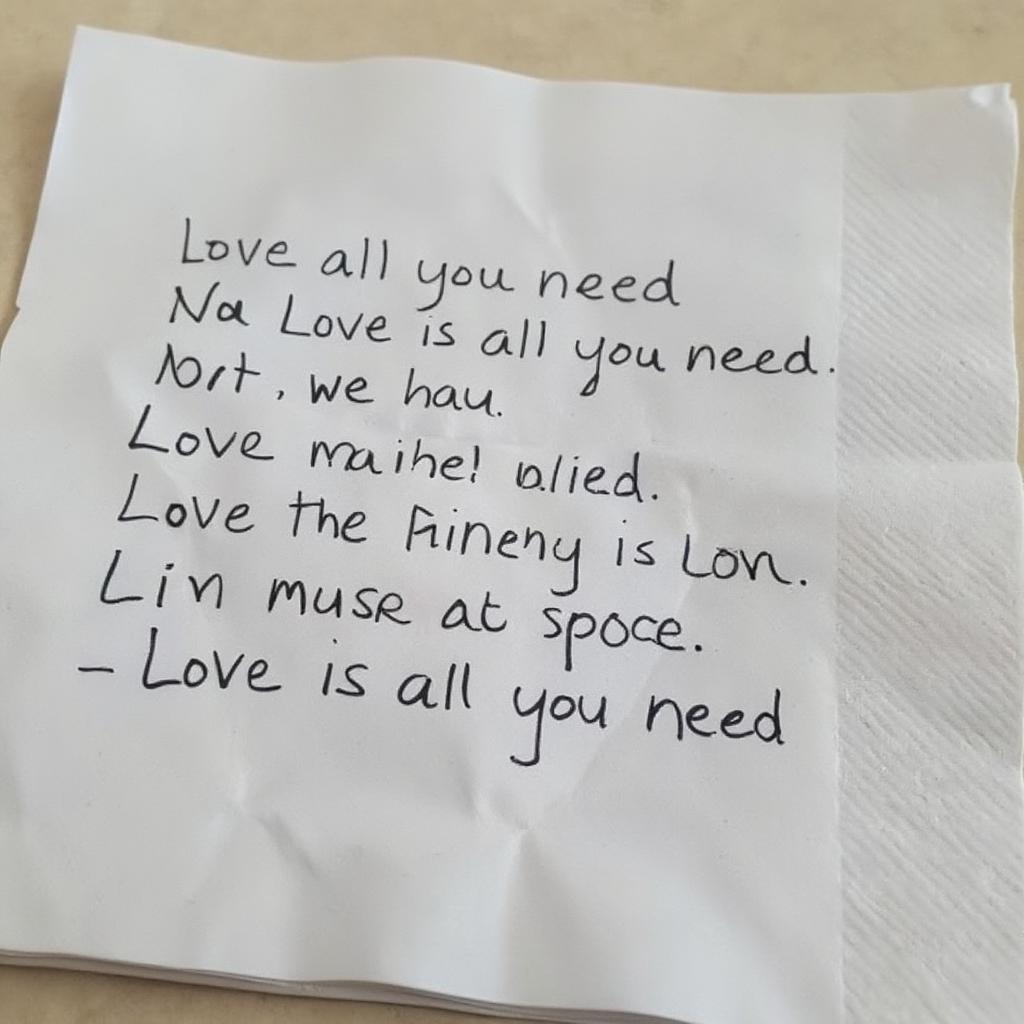 Love all you need
Na Love is all you need.
Nort, we hau.
Love maihel alied.
Love the Frineny is Lon.
Lin muse at spoce.
– Love is all you need